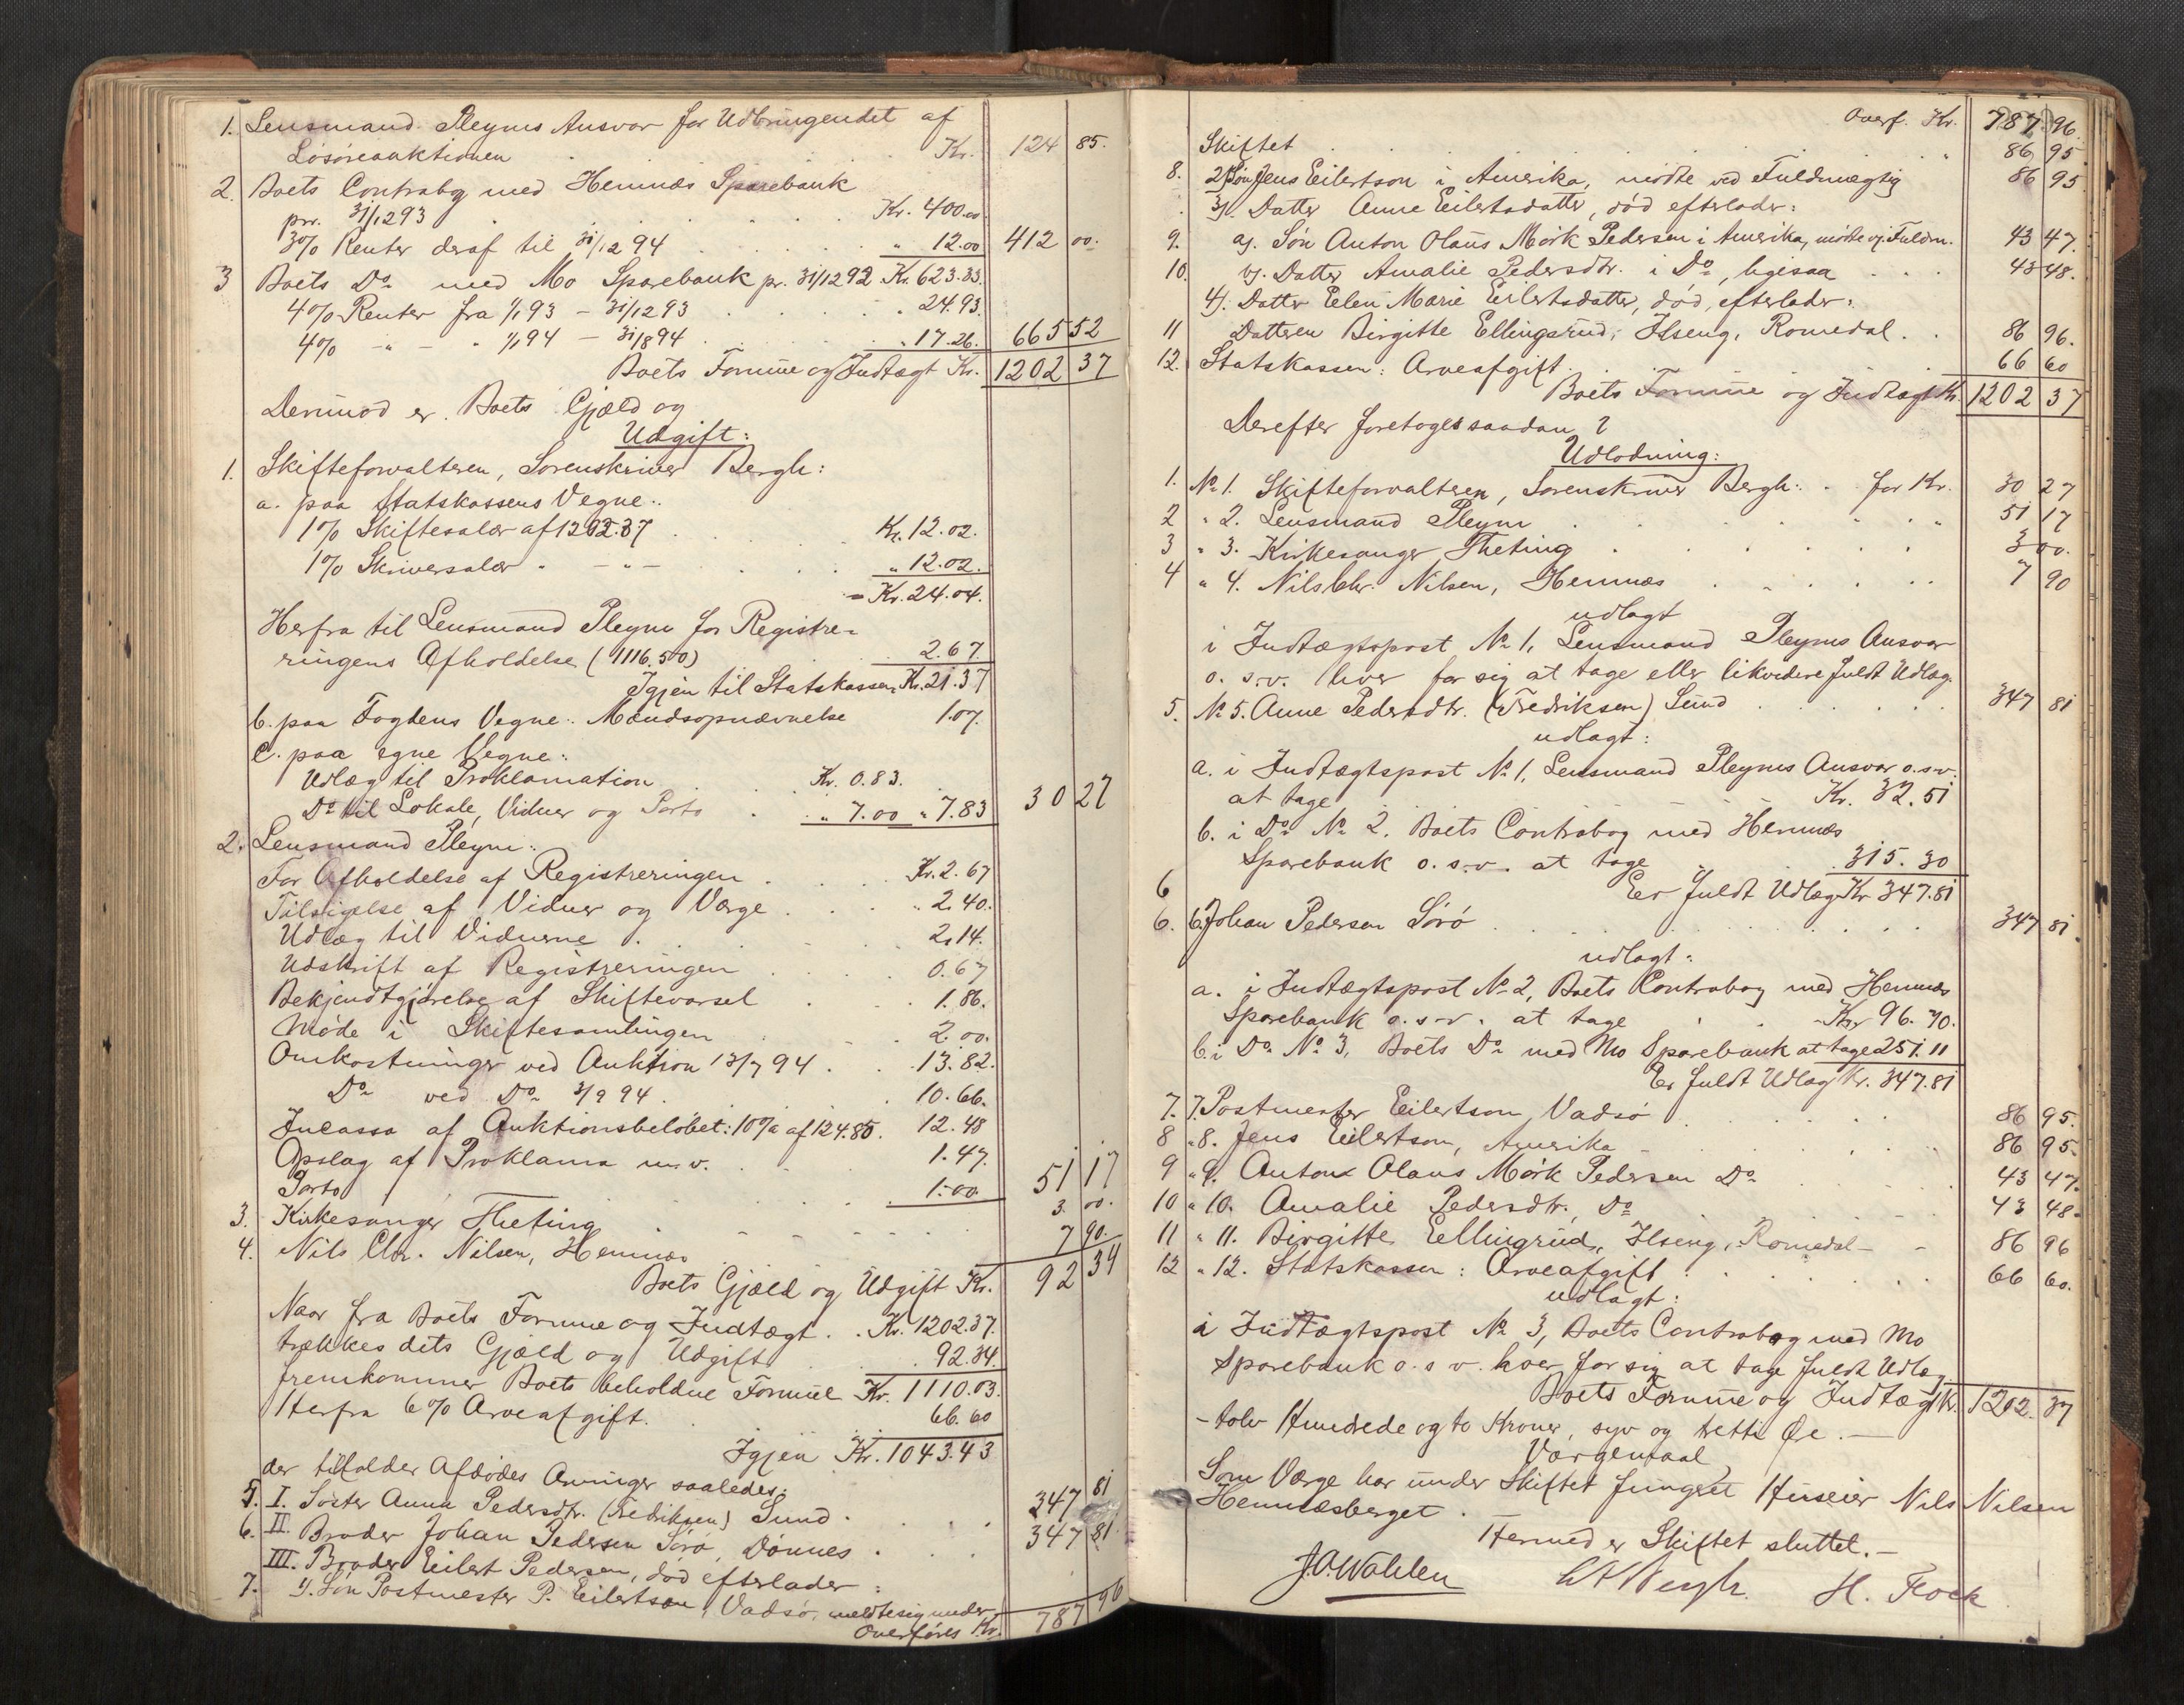 1. Lensmand Pleyms Ansvar for Udbringendet af
Løsøreauktionen . . . Kr. 124 85.
2. Boets Contrabog med Hemnæs Sparebank
pr. 31/12 93 . . . Kr. 400.00
3% Renter deraf til 31/12 94 . . . " 12.00 412 00.
3 Boets Do med Mo Sparebank pr. 31/12 92 Kr. 623.33.
4% Renter fra 1/1 93 - 31/12 93 . . . " 24.93.
4% " - " 1/1 94 - 31/8 94 . . . " 17.26. 665 52
Boets Formue og Indtægt Kr. 1202 37
Derimod er Boets Gjæld og
Udgift:
1. Skifteforvalteren, Sorenskriver Bergh:
a. paa Statskassens Vegne:
1% Skiftesalær af 1202.37 . . . Kr. 12.02.
1% Skriversalær " - " - . . . " 12.02.
= Kr. 24.04.
Herfra til Lensmand Pleym for Registre-
ringens Afholdelse (1116.50) . . 2.67
Igjen til Statskassen Kr. 21.37
b. paa Fogdens Vegne: Mændsopnævnelse 1.07.
c. paa egne Vegne:
Udlæg til Proklamation . . Kr. 0.83.
Do til Lokale, Vidner og Porto . . " 7.00 " 7.83 30 27
2. Lensmand Pleym:
For Afholdelse af Registreringen . . . Kr. 2.67
Tilsigelse af Vidner og Værge . . . " 2.40.
Udlæg til Vidnerne . . . 2.14.
Udskrift af Registreringen . . . 0.67
Bekjendtgjørelse af Skiftevarsel . . . 1.86.
Møde i Skiftesamlingen . . . 2.00.
Omkostninger ved Auktion 13/7 94 . . . 13.82.
Do ved Do 3/9 94 . . . 10.66.
Incasso af Auktionsbeløbet: 10% af 124.85. 12.48
Opslag af Proklama m.v. . . . 1.47.
Porto . . . 1.00. 51 17
3. Kirkesanger Theting . . . 3. 00.
4. Nils Chr. Nilsen, Hemnæs . . . 7 90.
Boets Gjæld og Udgift Kr. 92 34
Naar fra Boets Formue og Indtægt . . Kr. 1202.37.
trækkes dets Gjæld og Udgift . . 92.34.
fremkommer Boets beholdne Formue Kr. 1110.03.
Herfra 6% Arveafgift. . . 66.60
Igjen Kr. 1043.43
der tilfalder Afdødes Arvinger saaledes:
5. I. Søster Anna Pedersdtr. (Fredriksen) Sund . . . 347 81
6. II. Broder Johan Pedersen Sørø, Dønnes . . . 347 81.
III. Broder Eilert Pedersen, død efterlader :
7. 1). Søn Postmester P. Eilertson, Vadsø, meldte sig under
Overføres Kr. 787 96
Overf. Kr. 787 96.
Skiftet . . . " 86 95.
8. 2) Søn Jens Eilertson i Amerika, mødte ved Fuldmægtig 86 95
3). Datter Anne Eilertsdatter, død efterlader:
9. a). Søn Anton Olaus Mørk Pedersen i Amerika, mødte v. Fuldm. 43 47.
10. b). Datter Amalie Pedersdtr. i Do, ligesaa . . . 43 48.
4). Datter Elen Marie Eilertsdatter, død, efterlader:
11 Datteren Birgitte Ellingsrud, Ilseng, Romedal . . 86 96.
12. Statskassen: Arveafgift . . . 66 60
Boets Formue og Indtægt Kr. 1202 37
Derefter foretages saadan
Udlodning:
1. No 1. Skifteforvalteren, Sorenskriver Bergh: . for Kr. 30 27
2 " 2. Lensmand Pleym . . . " 51 17
3 " 3. Kirkesanger Theting . . . 3 00.
4 " 4. Nils Chr. Nilsen, Hemnæs . . . 7 90
udlagt
i Indtægtspost No 1, Lensmand Pleyms Ansvar
o. s.v. hver for sig at tage eller likvidere fuldt Udlæg.
5. No 5. Anne Pedersdtr. (Fredriksen) Sund . . . 347 81
udlagt:
a. i Indtægtspost No 1, Lensmand Pleyms Ansvar o.s.v.
at tage . . . Kr. 32.51
b. i Do No 2. Boets Contrabog med Hemnæs
Sparebank o.s.v. at tage . . 315.30
6 Er fuldt Udlæg Kr. 347.81
6. 6. Johan Pedersen Sørø . . . 347 81.
udlagt:
a. i Indtægtspost No 2, Boets Contrabog med Hemnæs
Sparebank o.s.v. at tage . . . Kr. 96.70.
b. i Do No 3, Boets Do med Mo Sparebank at tage 251.11
Er fuldt Udlæg Kr. 347.81
7. 7. Postmester Eilertson, Vadsø . . . 86 95.
8 " 8. Jens Eilertson, Amerika . . . 86 95.
9 " 9. Anton Olaus Mørk Pedersen Do . . . 43 47.
10 " 10. Amalie Pedersdtr. Do . . . 43 48.
11 " 11. Birgitte Ellingsrud, Ilseng, Romedal - - 86 96
12 " 12. Statskassen: Arveafgift . . . 66 60.
udlagt:
i Indtægtspost No 3, Boets Contrabog med Mo
Sparebank o.s.v. hver for sig at tage fuldt Udlæg
Boets Formue og Indtægt Kr. 1202. 37
- tolv Hundrede og to Kroner, syv og tretti Øre. -
Værgemaal
Som Værge har under Skiftet fungeret Huseier Nils Nilsen
Hemnæsberget .
Hermed er Skiftet sluttet. -
J. O. Wahlen Bergh. H. Flock